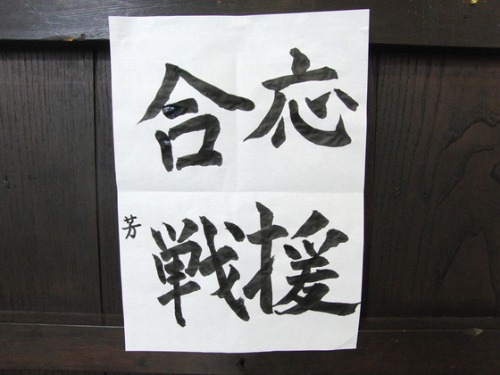 応援
合戦
芳